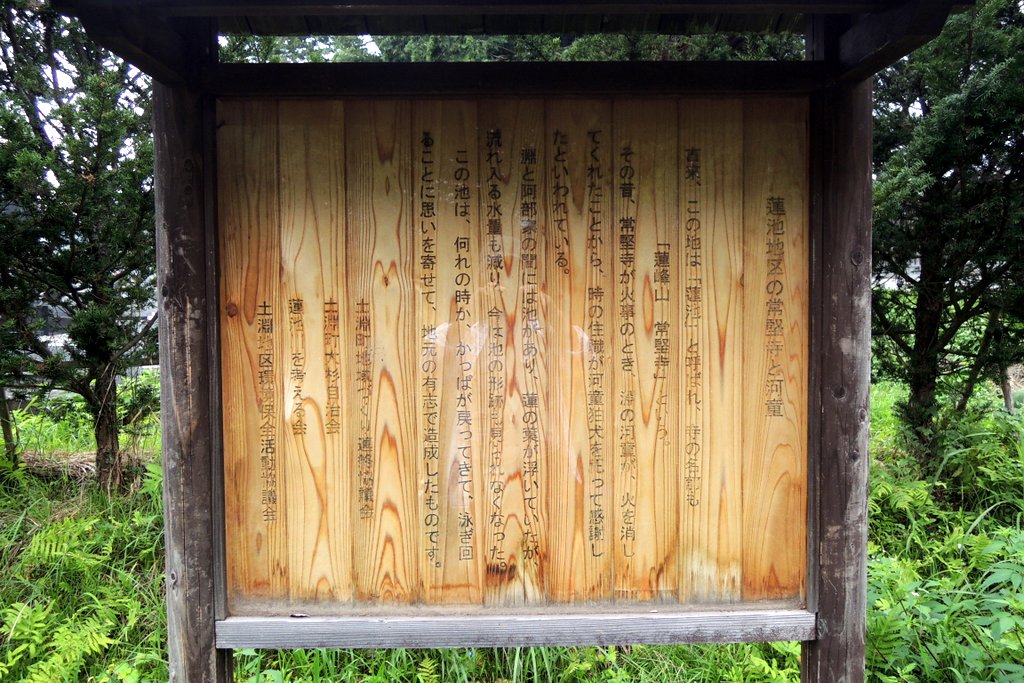 蓮池地区の常堅寺と河童
古来、この地は「蓮池」と呼ばれ、寺の名前も
「蓮峰山 常堅寺」という。
その昔、常堅寺が火事のとき、淵の河童が、火を消し
てくれたことから、時の住職が河童狛犬をもって感謝し
たといわれている。
淵と阿部家の間には池があり、蓮の葉が浮いていたが、
流れ入る水量も減り、今は池の形跡も見られなくなった。
この池は、何れの時か、かっぱが戻ってきて、泳ぎ回
ることに思いを寄せて、地元の有志で造成したものです。
土淵町地域づくり連絡協議会
土淵町大杉自治会
蓮池 を考える会
土淵地区環境保全活動協議会